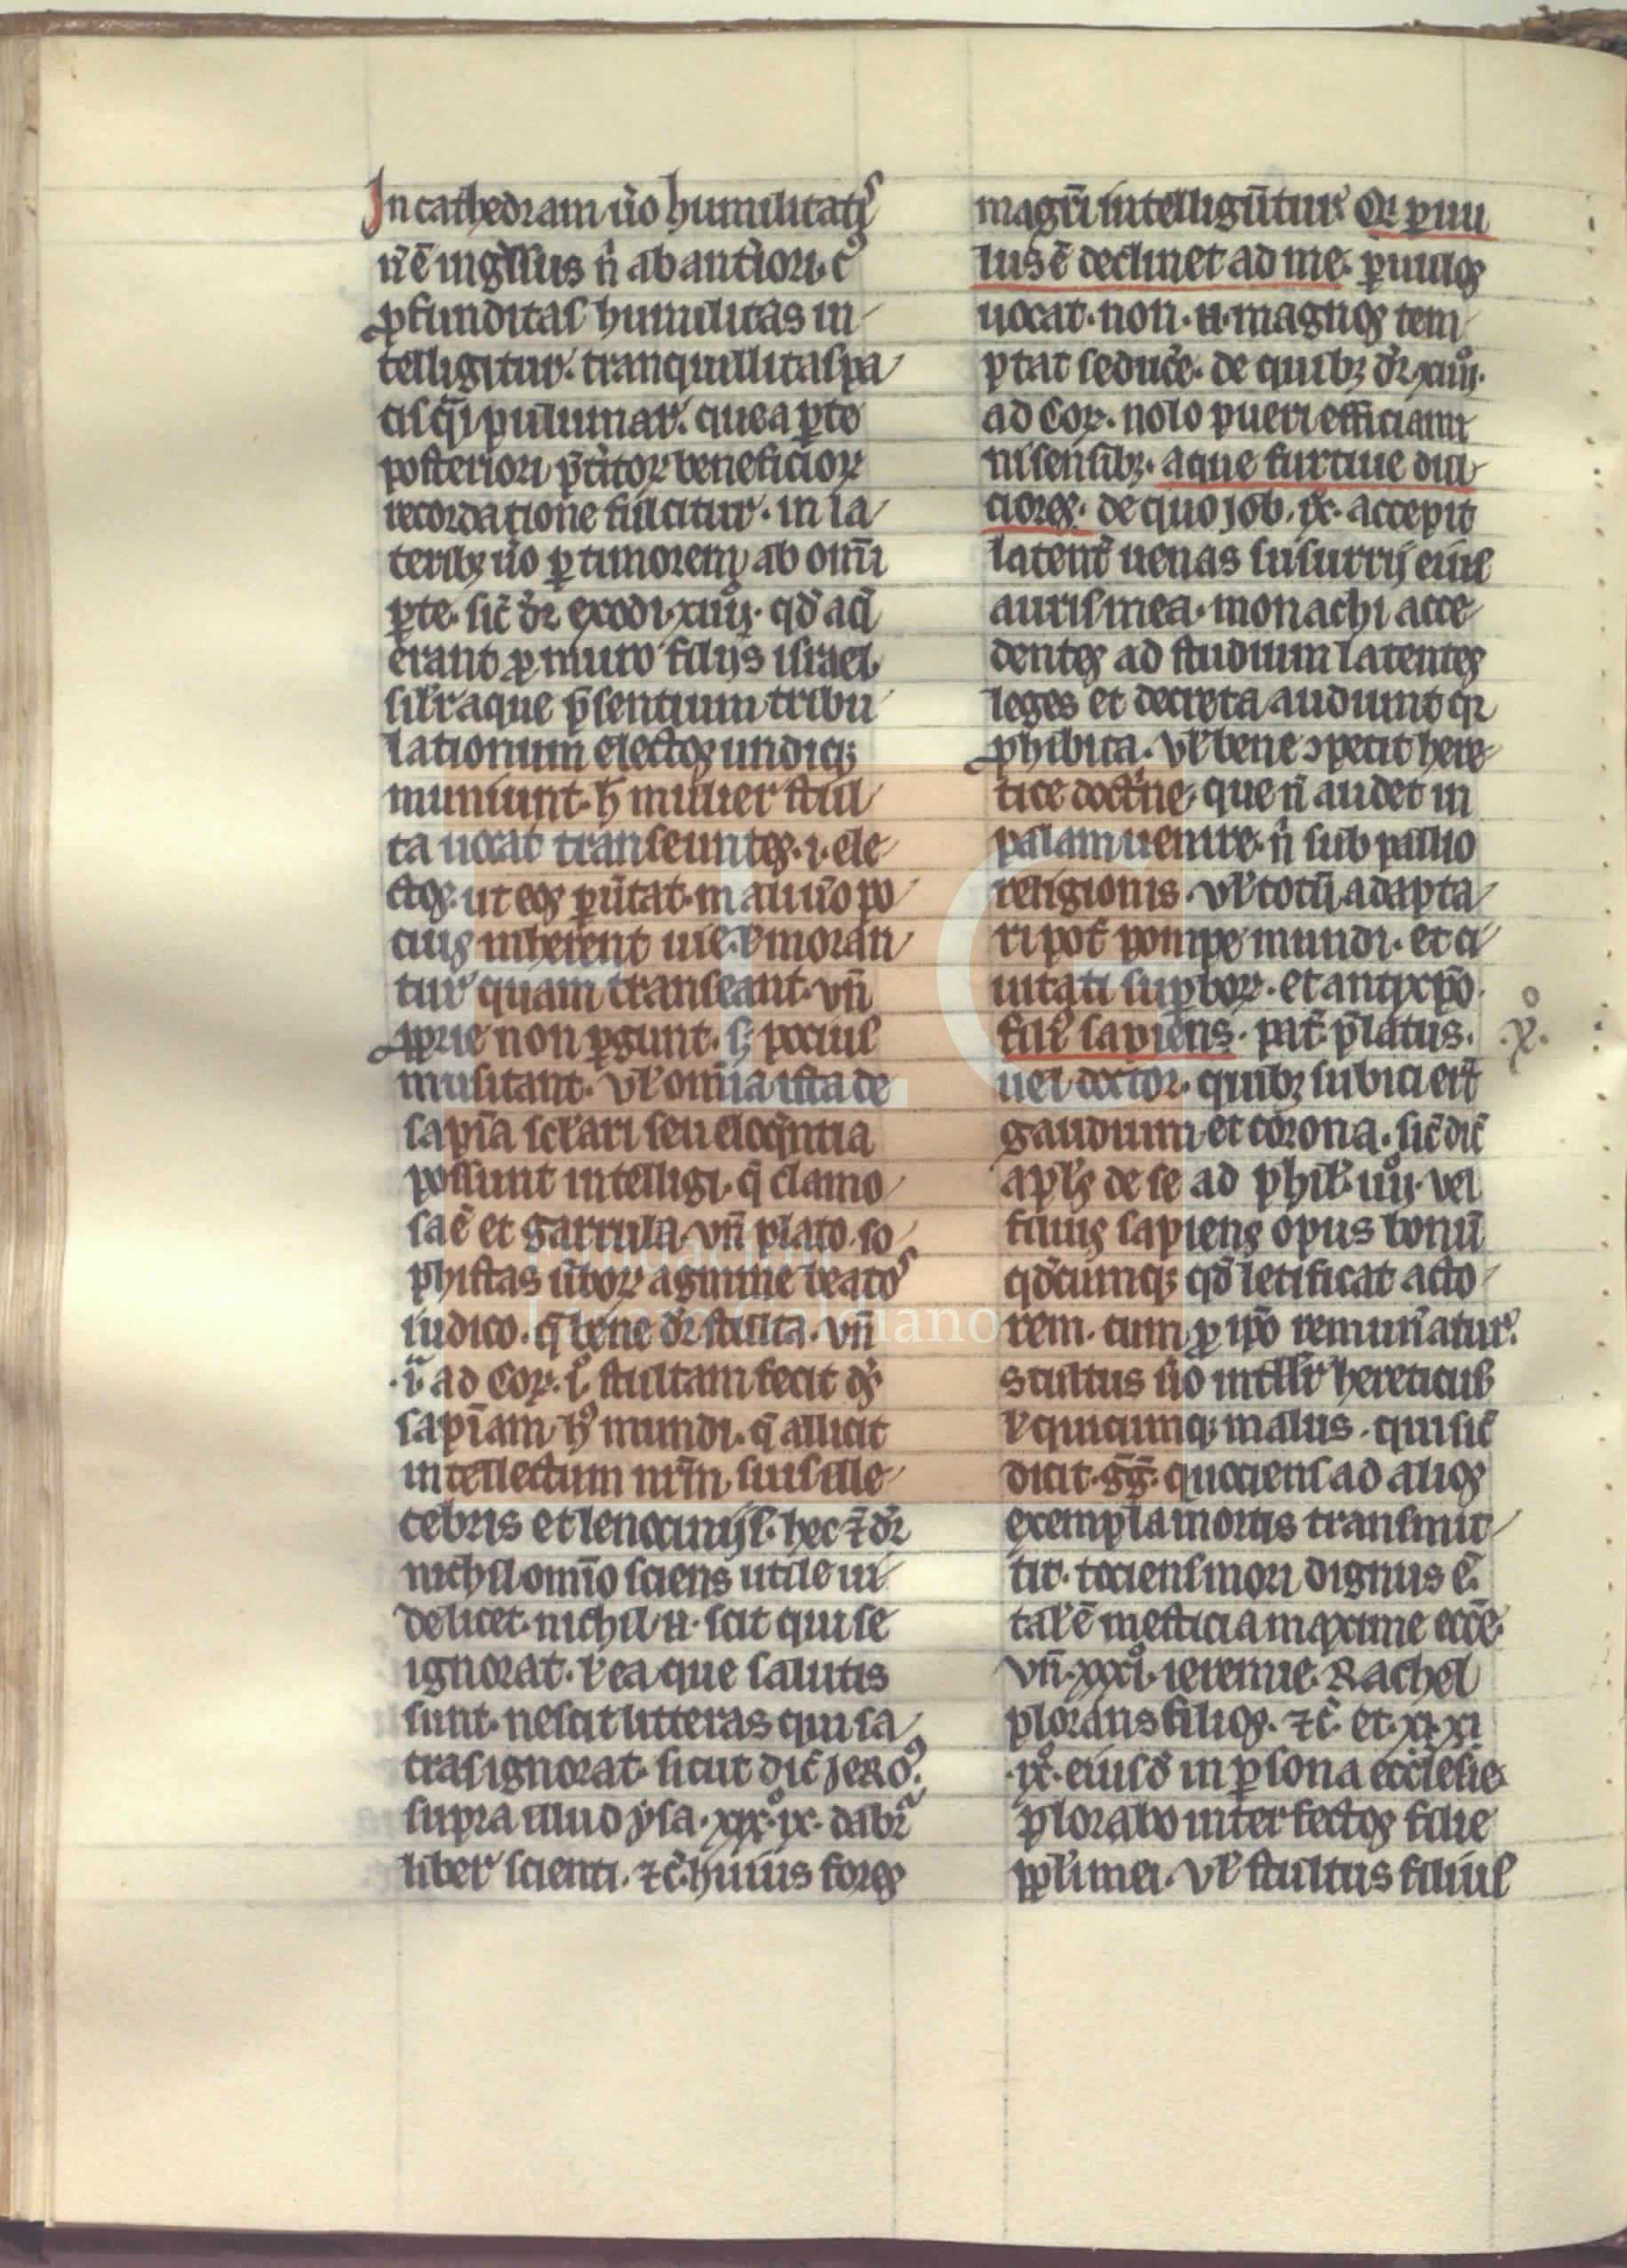 In cathedram ũo humilitatꝭ
n̄ ē ingͥssus n̄ ab anẗiori c̄ꝰ
ꝓfunditas humilitas in
telligitur. tranquillitas pa
cis q̃i puluinar. que a ꝑte
posteriori p̃t̾itoꝝ beneficioꝝ
recordatione fulcitur. in la
teribꝫ ũo ꝑ timorem ab om̄i
ꝑte. sic̄ dr̄ exodi. xiiijͦ. qd̄ aq̄
erant ꝓ muro filijs israel.
silr̄ aque p̄sentium tribu
lationum electos undiqꝫ
muniunt. h̄ mulier stul
ta uocat transeuntes .i. ele
ctos. ut eos ꝑũtat. mali ũo po
cius inherent uie. ł moran
tur quam transeant. vn̄
ꝓprie non ꝑgunt. sꝫ pocius
musitant. Vł omnia ista de
sapīa sclāri seu eloq̄ntia
possunt intelligi. q̄ clamo
sa ē et garrula. vn̄ plato. so
phistas ũboꝝ agmine beatos
iudico. q̄ bene dr̄ stulta. vn̄
.iͣ. ad Coꝝ. iͦ. stultam fecit dꝰ
sapīam hꝰ mundi. q̄ allicit
intellectum nr̄m suis ille
cebris et lenocinijs. hec ⁊ dr̄
nichil omīo sciens utile ui
delicet. nichil .n. scit qui se
ignorat. ł ea que salutis
sunt. nescit litteras qui sa
cras ignorat. sicut dic̄ Jeroꝰ.
supra illud ysa. xixͦ. ix. dabit̾
liber scienti. ⁊c̄. huius fores
magr̄i intelligūtur. Qi ꝑuu
lus ē declinet ad me. ꝑuulos
uocat. non .n. magnos tem
ptat seduc̾e. de quibꝫ dr̄ xiiijͦ.
ad Coꝝ. nolo pueri efficiami
ni sensibꝫ. aque furtiue dul
ciores. de quo Job. ix. accepit
latent̾ uenas susurrij eius
auris mea. monachi acce
dentes ad studium latentes
leges et decreta audiunt qr̄
ꝓhibita. Vł bene ꝯpetit here
tice doctͥne. que n̄ audet in
palam uenire. n̄ sub pallio
religionis. Vł totū adapta
ri pot̾ pompe mundi. et ci
uitati suꝑboꝝ. et antixp̄o.
filiꝰ sapiens. pat̾ p̄latus.
.xͦ.
uel doctor. quibꝫ subici est
gaudium et corona. sic̄ dic̄
apłs de se ad phił. iiijͦ. vel
filius sapiens opus bonū
qd̄cumqꝫ qd̄ letificat acto
rem. cum ꝓ ip̄o remun̾atur.
stultus ũo intellr̄ hereticus
ł quicumqꝫ malus. qui sic̄
dicit .gg̃. quociens ad alios
exempla mortis transmit
tit. tociens mori dignus ē.
tał ē mesticia maxime ecc̄e.
vn̄ .xxxiͦ. ieremie. Rachel
plorans filios. ⁊c̄. et. xi. xi
.ixͦ. eiusd̄ in ꝑsona ecclesie.
plorabo interfectos filie
ppłi mei. Vł stultus filius